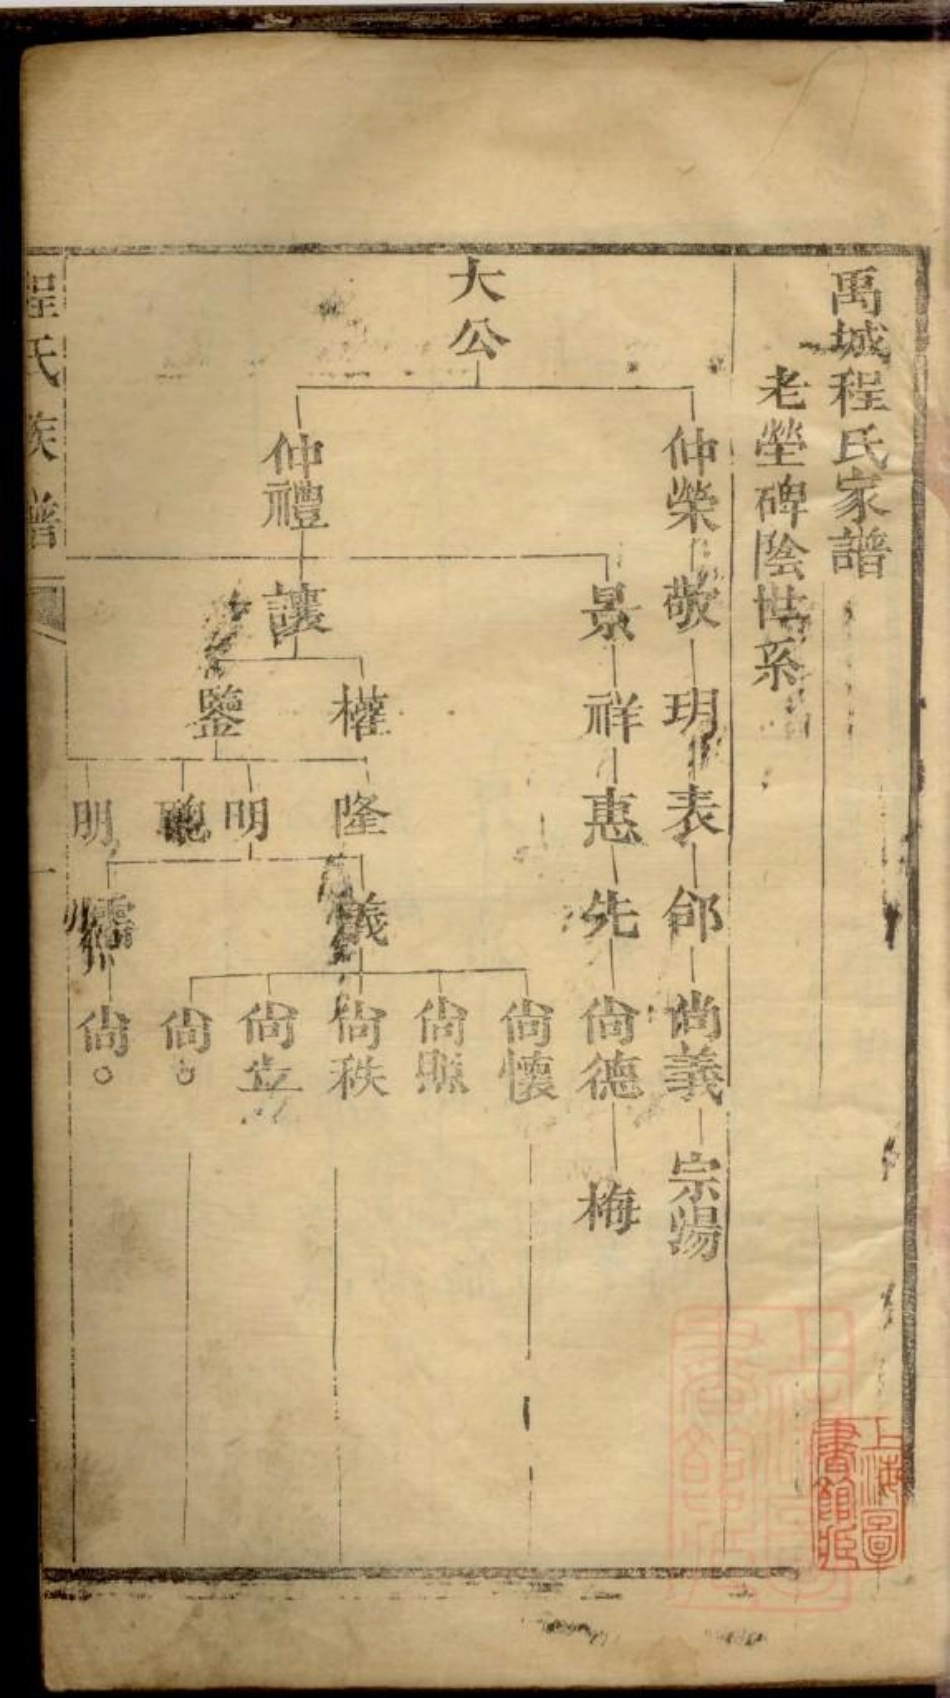 禹城程氏家譜
老塋碑陰世系
大公
仲榮
仲禮
敬
景
讓
玥
祥
權
鑒
表
惠
隆
明
聰
明
郃
先
儀
儒
尙義
尙德
尙懷
尙熙
尙秩
尙立
尙○
尙○
宗湯
梅
程氏族譜
一
上海圖書館藏